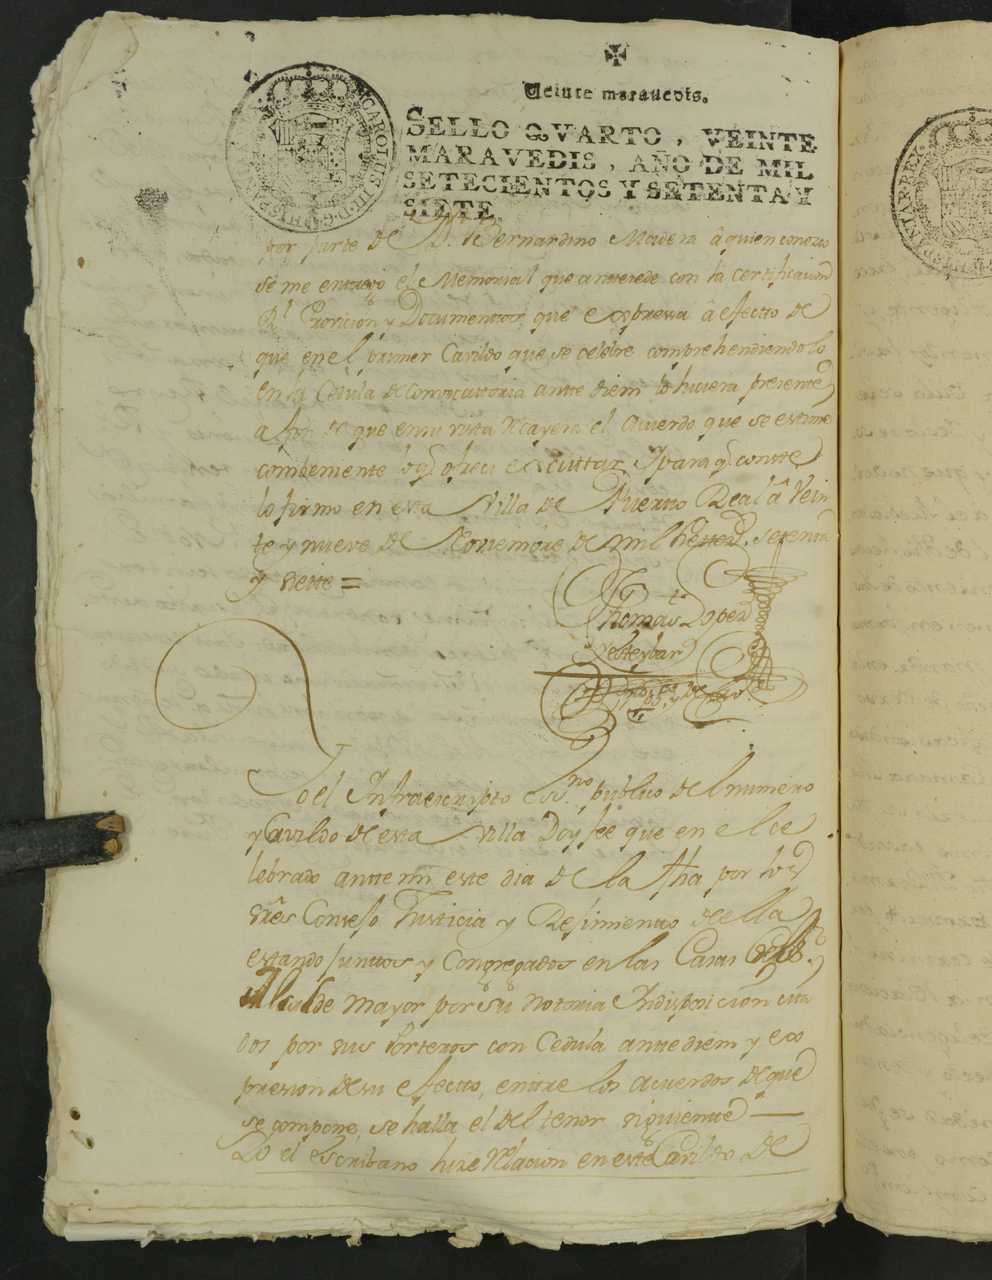 Veinte maravedis.
SELLO QVARTO, VEINTE
MARAVEDIS, AÑO DE MIL
SETECIENTOS Y SETENTA Y
SIETE.
CAROLUS III D G HISPANIAR REX
Por parte de Dn. Bernardino Madera â quien conozco
se me entregó el Memorial que antecede con la certificacion
Posicion y Documentos que expresa â efecto de
que en el primer Cavildo que se celebre comprehendiendolo
en la Cedula de Convocattoria ante diem lo hiciera presente
a fin de que en su vista recayera el Acuerdo que se estime
combeniente lo qe. ofreci executtar Y para qe. conste
lo firmo en esta Villa de Puertto Real â Vein
te y nueve de Noviembre de mil settecs. setenta
y siette =
Thomas Lopez
Esteybar
Yo el Infraescripto Essno. publico del numero
y Cavildo de esta Villa Doy fee que en el ce
lebrado antte mi este dia de la fha por los
sres Consejo Justicia y Rejimiento de ella
estando junttos y Congregados en las Casas del Sr.
Alcalde mayor por su notoria Indisposicion cita
dos por sus Porteros con Cedula ante diem y ex
presion de su efecto, entre los acuerdos de que
se compone, se halla el del tenor siguiente
Yo el escribano hize Relacion en este Cavildo de